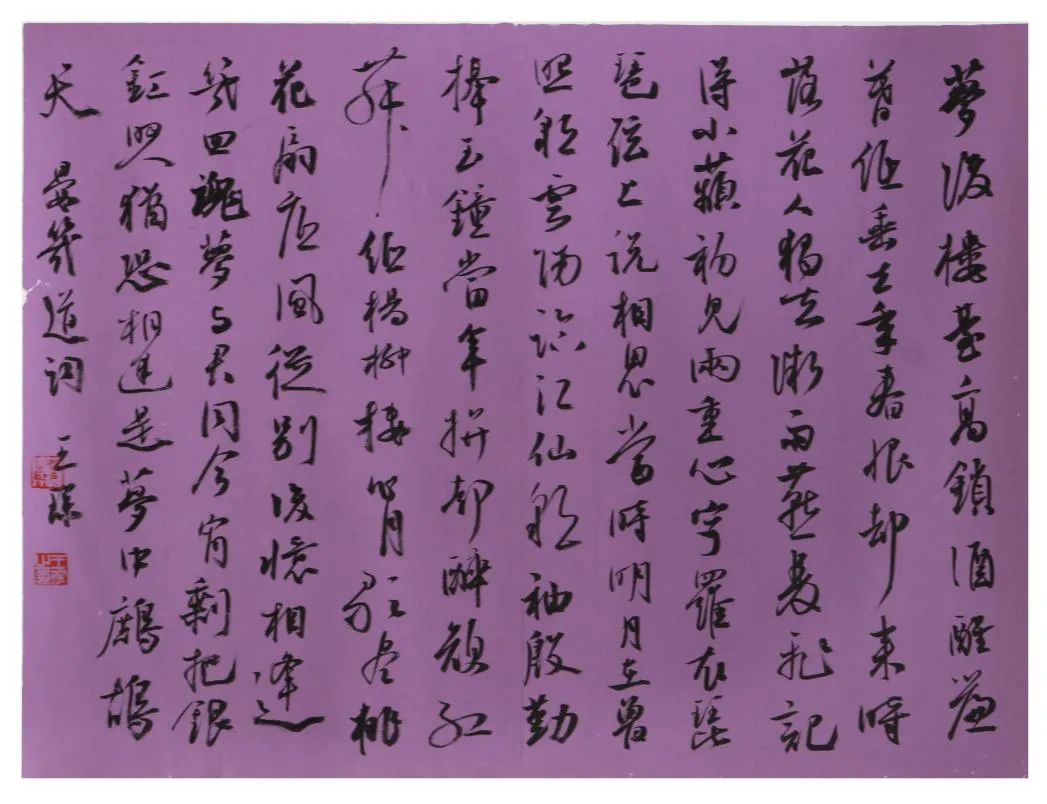 夢後樓臺高鎖酒醒簾
幕低垂去年春恨却來時
落花人獨立微雨燕雙飛記
得小蘋初見兩重心字羅衣琵
琶弦上説相思當時明月在曾
照彩雲歸臨江仙彩袖殷勤
捧玉鐘當年拚却醉顏紅
舞低楊柳樓心月歌盡桃
花扇底風從別後憶相逢
幾回魂夢与君同今宵剩把銀
釭照猶恐相逢是夢中鷓鴣
天 晏幾道詞 王